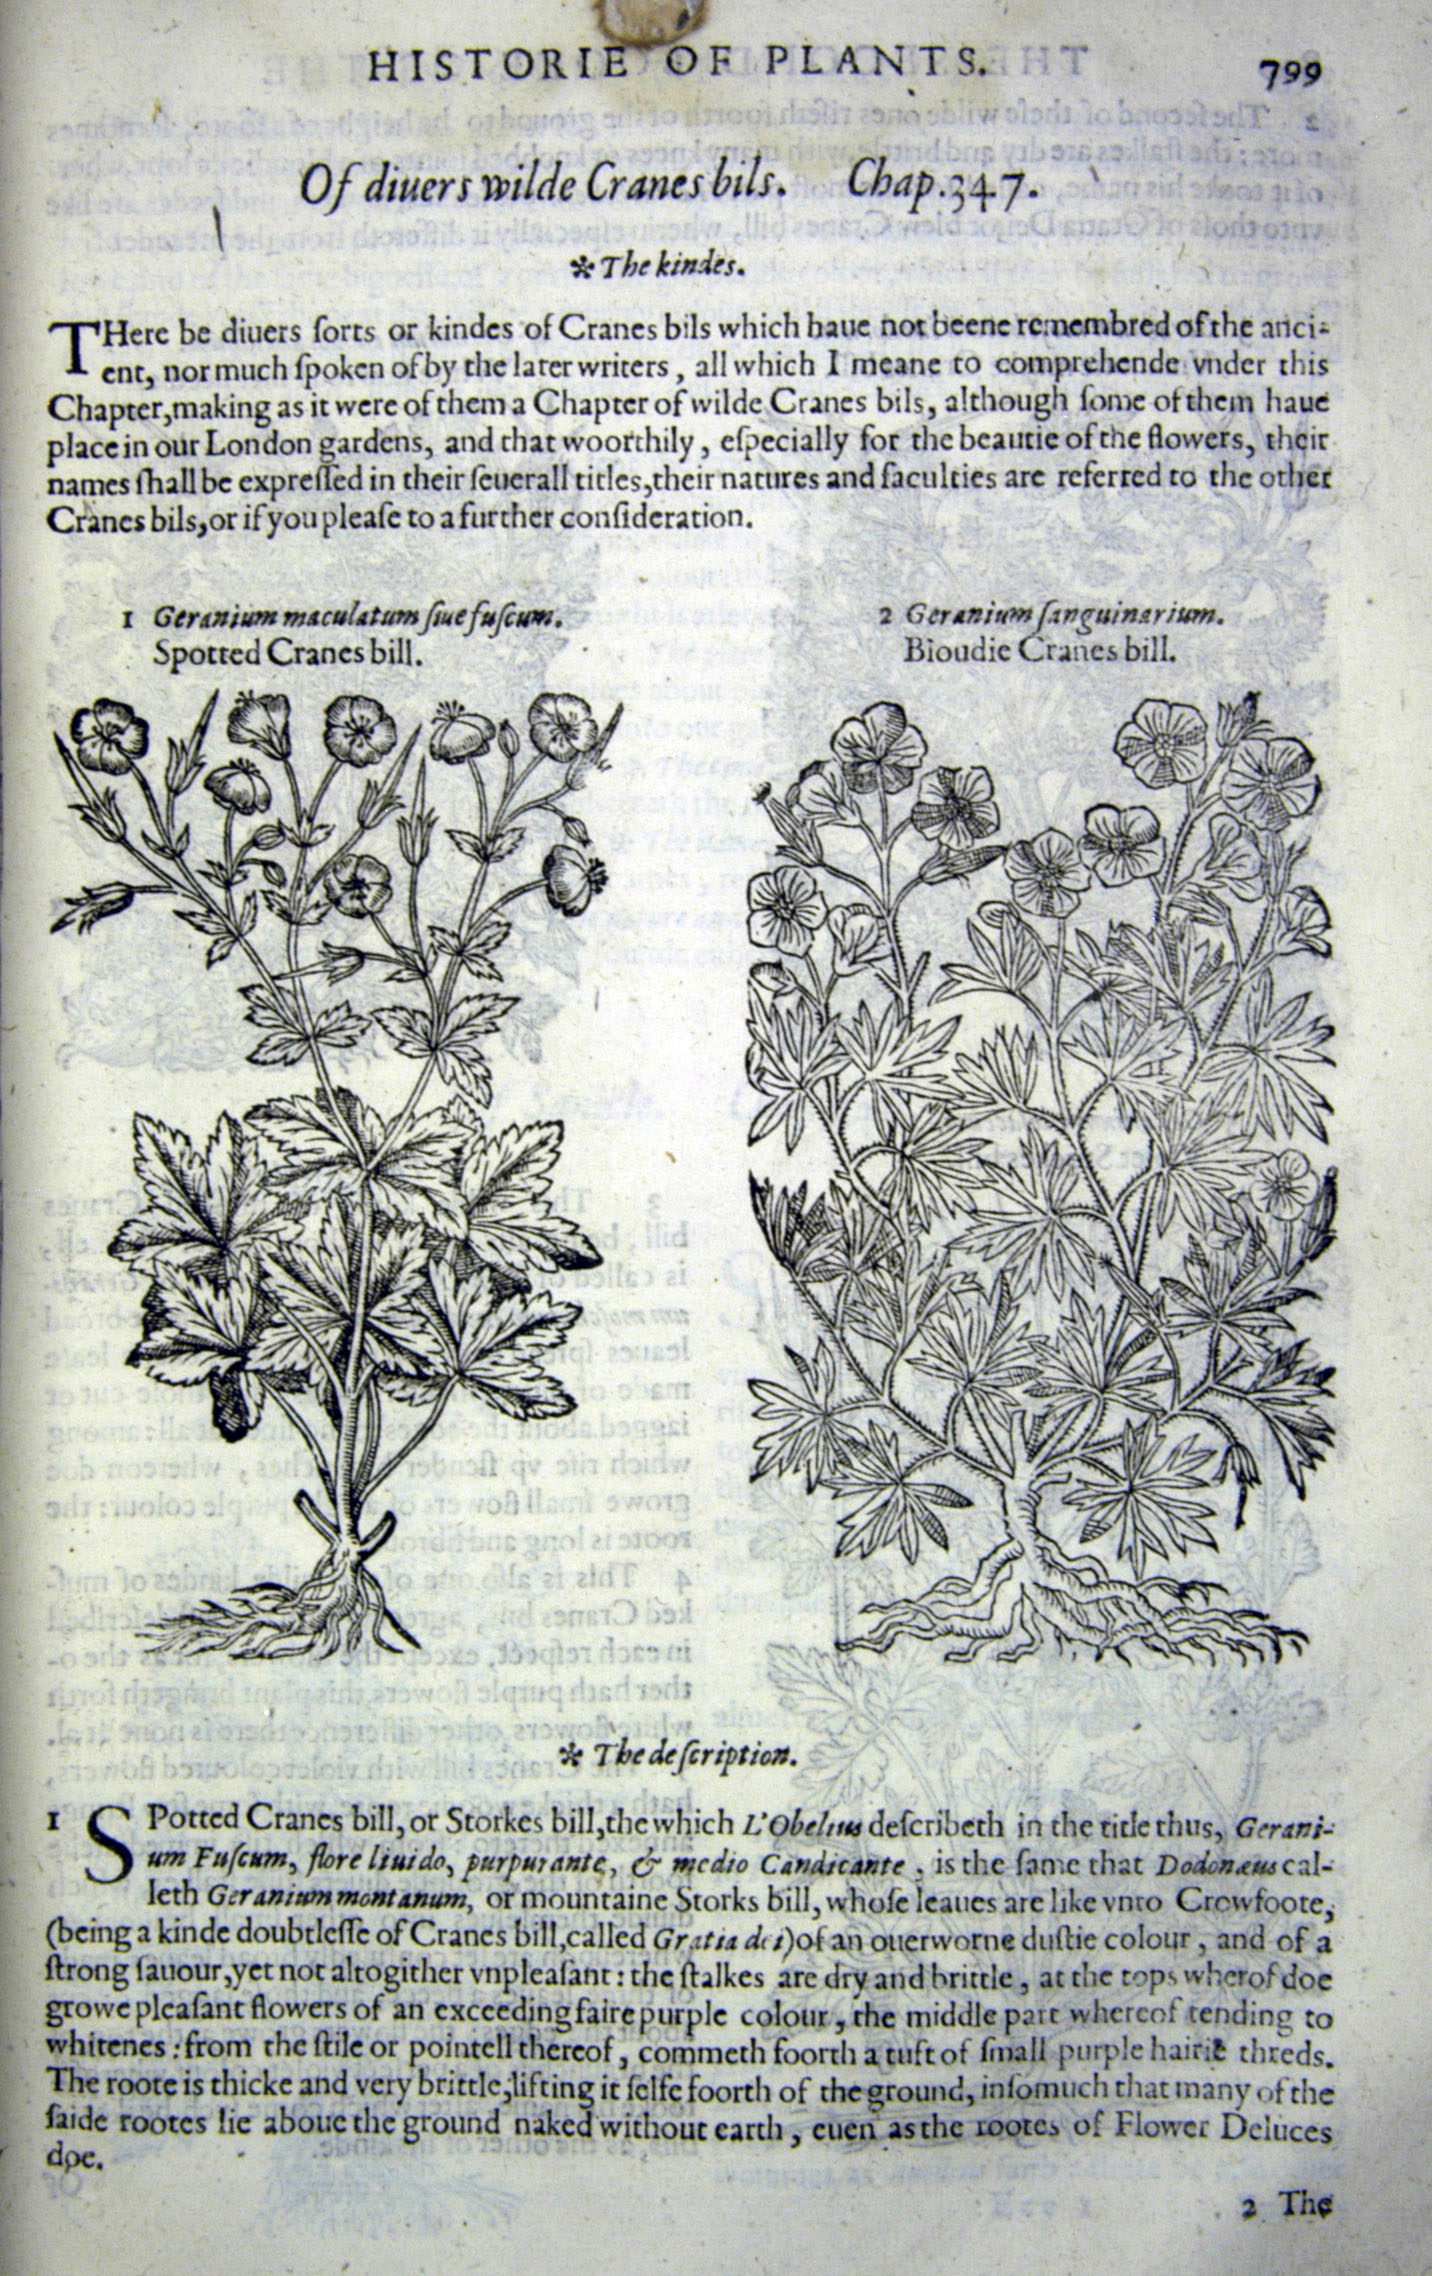 HISTORIE OF PLANTS. 799
Of diuers wilde Cranes bils. Chap.347.
❋ The kindes.
THere be diuers ſorts or kindes of Cranes bils which haue not beene remembred of the anci-
ent, nor much ſpoken of by the later writers, all which I meane to comprehende vnder this
Chapter, making as it were of them a Chapter of wilde Cranes bils, although ſome of them haue
place in our London gardens, and that woorthily, eſpecially for the beautie of the flowers, their
names ſhall be expreſſed in their ſeuerall titles, their natures and faculties are referred to the other
Cranes bils, or if you pleaſe to a further conſideration.
1 Geranium maculatum ſiue fuſcum.
Spotted Cranes bill.
2 Geranium ſanguinarium.
Bloudie Cranes bill.
❋ The deſcription.
1 SPotted Cranes bill, or Storkes bill, the which L'Obelius deſcribeth in the title thus, Gerani-
um Fuſcum, flore liuido, purpurante, & medio Candicante, is the ſame that Dodonæus cal-
leth Geranium montanum, or mountaine Storks bill, whoſe leaues are like vnto Crowfoote,
(being a kinde doubtleſſe of Cranes bill, called Gratia dei) of an ouerworne duſtie colour, and of a
ſtrong ſauour, yet not altogither vnpleaſant: the ſtalkes are dry and brittle, at the tops wherof doe
growe pleaſant flowers of an exceeding faire purple colour, the middle part whereof tending to
whitenes: from the ſtile or pointell thereof, commeth foorth a tuft of ſmall purple hairie threds.
The roote is thicke and very brittle, lifting it ſelfe foorth of the ground, inſomuch that many of the
ſaide rootes lie aboue the ground naked without earth, euen as the rootes of Flower Deluces
doe.
2 The